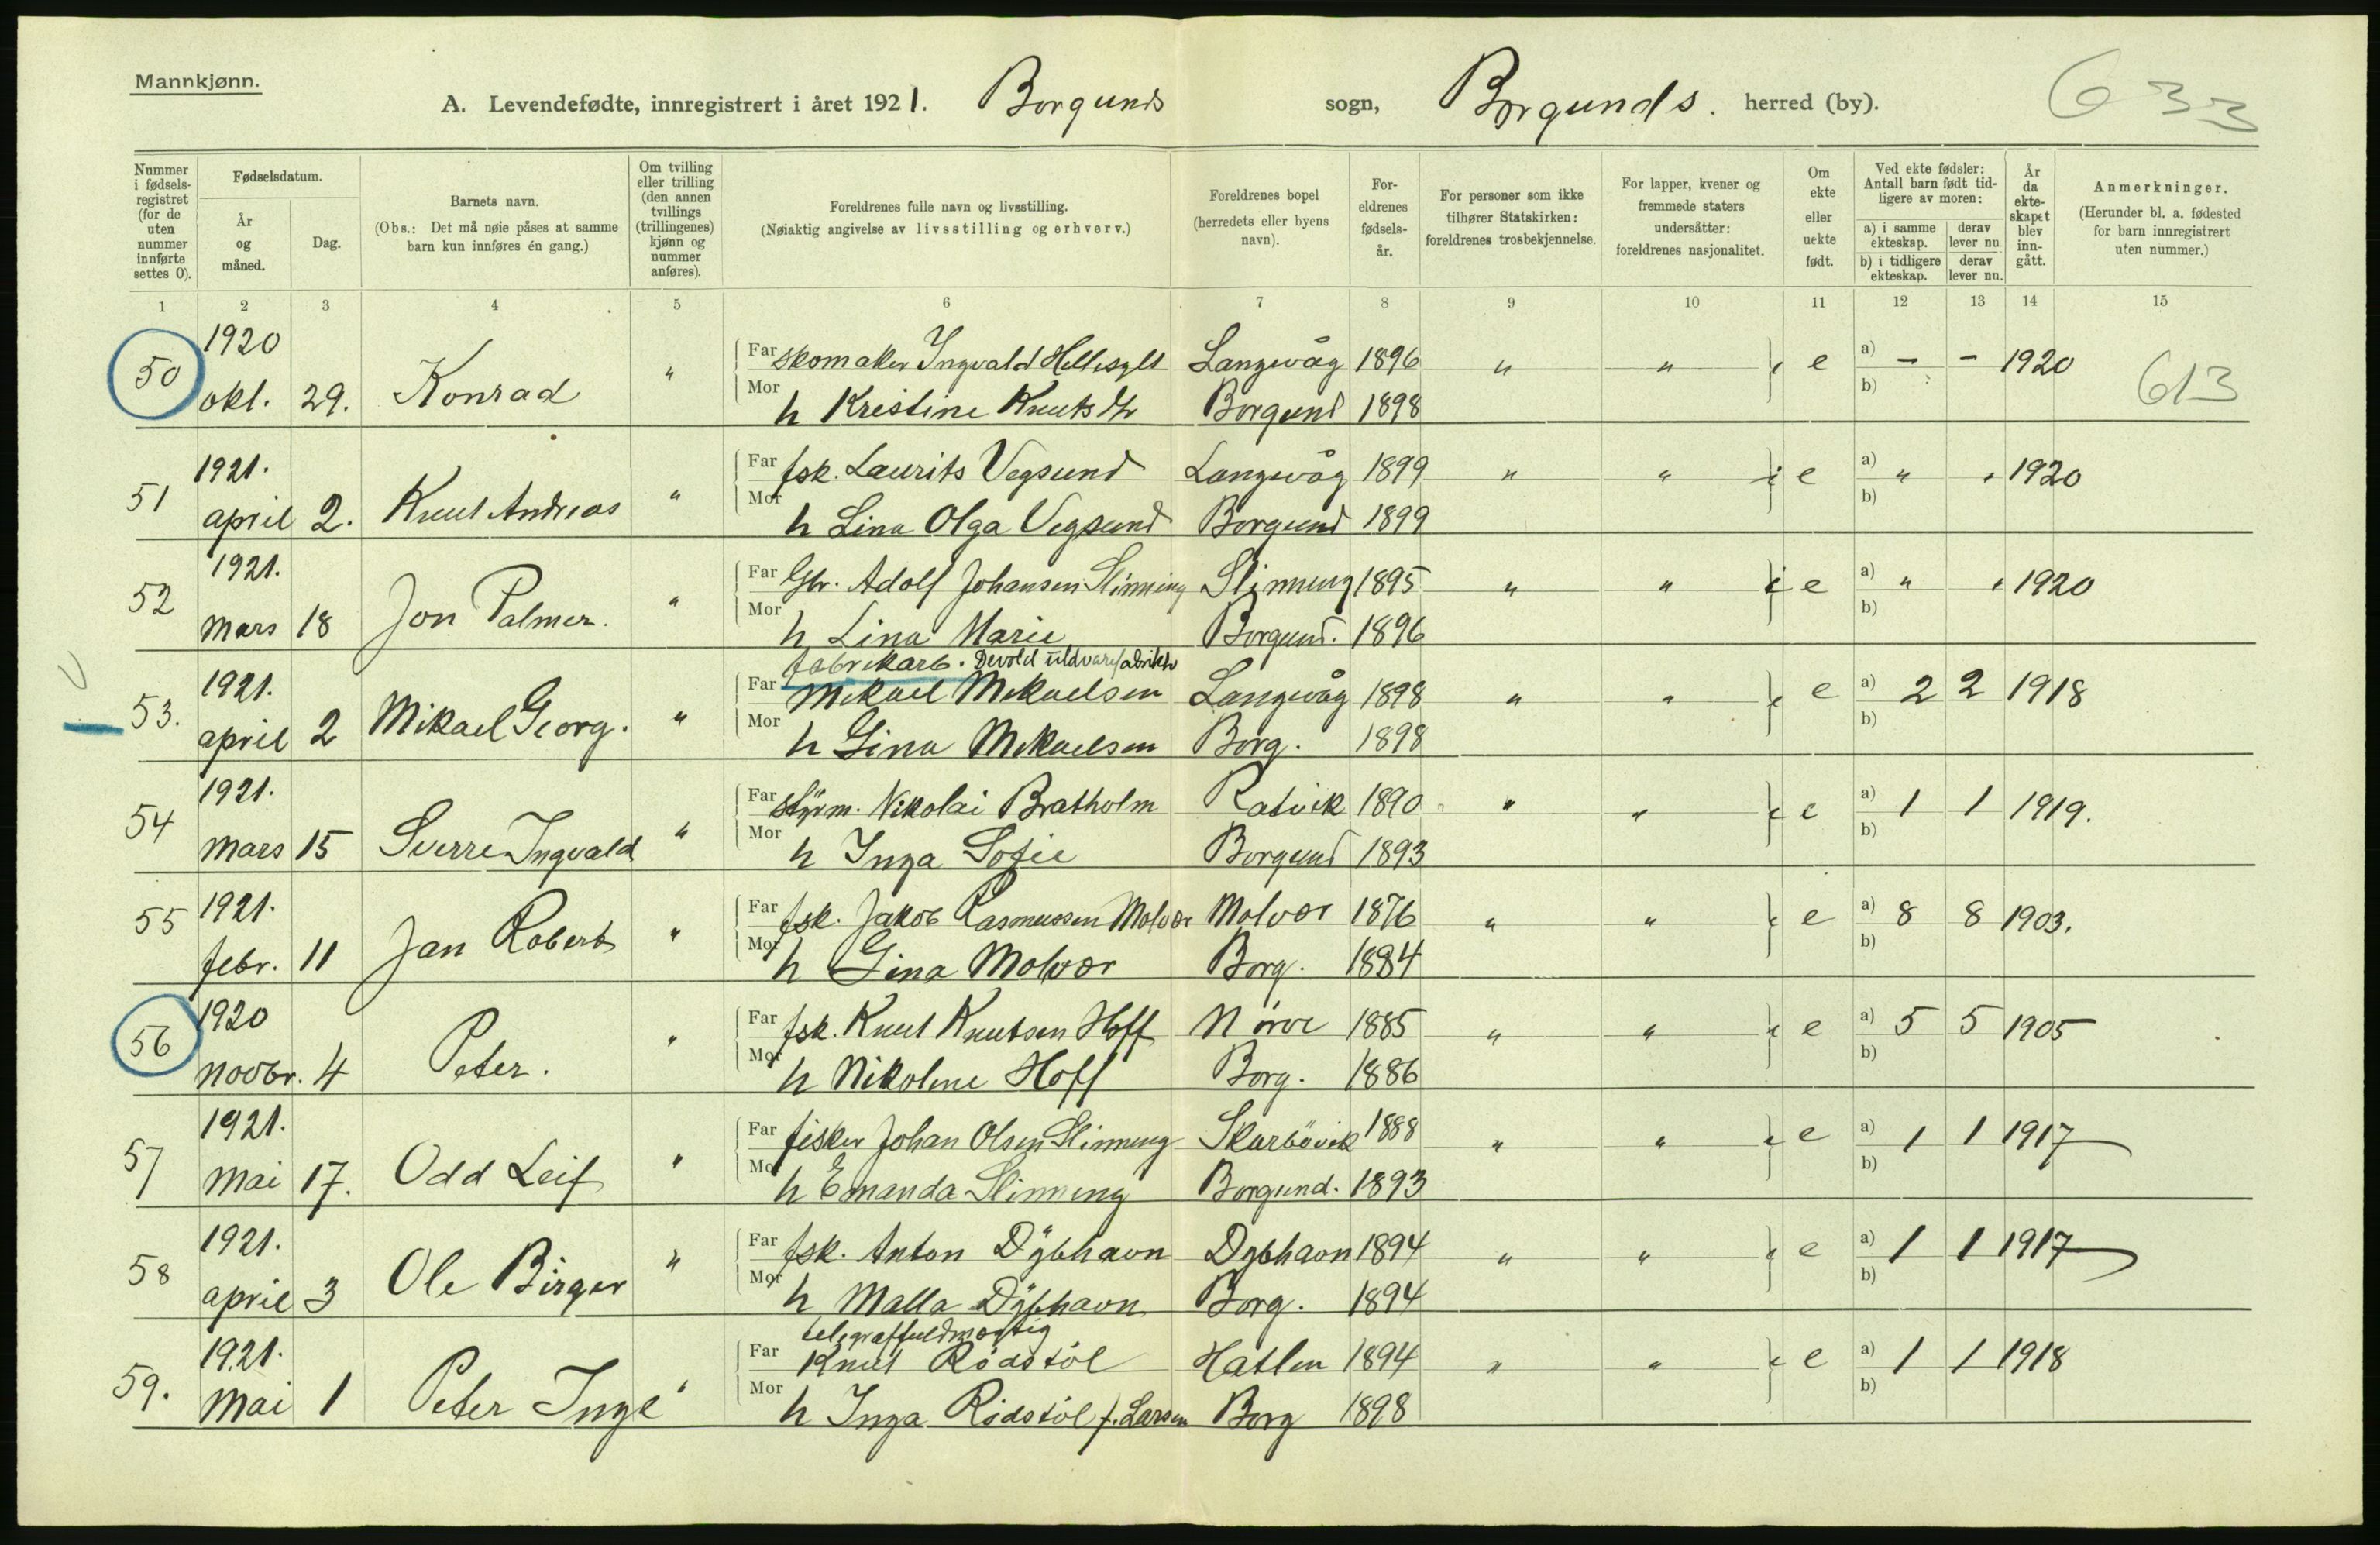 Mannkjønn.
A. Levendefødte, innregistrert i året 1921. Borgunds sogn, Borgunds. herred (by).
633
Nummer i fødsels-registret (for de uten nummer innførte settes 0).
Fødselsdatum.
År og måned.
Dag.
Barnets navn.
(Obs.: Det må nøie påses at samme barn kun innføres én gang.)
Om tvilling eller trilling (den annen tvillings (trillingenes) kjønn og nummer anføres).
Foreldrenes fulle navn og livsstilling.
(Nøiaktig angivelse av livsstilling og erhverv.)
Foreldrenes bopel (herredets eller byens navn).
For-eldrenes fødsels-år.
For personer som ikke tilhører Statskirken: foreldrenes trosbekjennelse.
For lapper, kvener og fremmede staters undersåtter: foreldrenes nasjonalitet.
Om ekte eller uekte født.
Ved ekte fødsler: Antall barn født tid-ligere av moren:
a) i samme ekteskap.
derav lever nu
b) i tidligere ekteskap.
derav lever nu.
År da ekte-skapet blev inn-gått.
Anmerkninger.
(Herunder bl. a. fødested for barn innregistrert uten nummer.)
1 2 3 4 5 6 7 8 9 10 11 12 13 14 15
50 1920 okt. 29. Konrad "
Far skomaker Ingvald Hellesylt Langevåg 1896 " " e a) - - 1920
Mor h Kristine Knutsdtr Borgund 1898 b)
613
51 1921. april 2. Knut Andreas "
Far fsk. Laurits Vegsund Langevåg 1899 " " e a) " " 1920
Mor h Lina Olga Vegsund Borgund 1899 b)
52 1921. mars 18 Jon Palmer. "
Far Gbr. Adolf Johansen Slinning Slinning 1895 " " e a) " " 1920
Mor h Lina Marie Borgund. 1896 b)
53. 1921. april 2 Mikael Georg. "
fabrikarb. Devold uldvarefabrikk
Far Mikael Mikaelsen Langevåg 1898 " " e a) 2 2 1918
Mor h Gina Mikaelsen Borg. 1898 b)
54 1921. mars 15 Sverre Ingvald "
Far styrm. Nikolai Bratholm Ratvik 1890 " " e a) 1 1 1919.
Mor h Inga Sofie Borgund 1893 b)
55 1921. febr. 11 Jan Robert "
Far fsk. Jakob Rasmussen Molvær Molvær 1876 " " e a) 8 8 1903.
Mor h Gina Molvær Borg. 1884 b)
56 1920 novbr. 4 Peter. "
Far fsk. Knut Knutsen Hoff Nørve 1885 " " e a) 5 5 1905
Mor h Nikoline Hoff Borg. 1886 b)
57 1921. mai 17. Odd Leif "
Far fisker Johan Olsen Slinning Skarbøvik 1888 " " e a) 1 1 1917
Mor h Emanda Slinning Borgund. 1893 b)
58 1921. april 3 Ole Birger "
Far fsk. Anton Dybhavn Dybhavn 1894 " " e a) 1 1 1917
Mor h Malla Dybhavn Borg. 1894 b)
59. 1921. mai 1 Peter Inge "
telegraffuldmægtig
Far Knut Rødstøl Hatlen 1894 " " e a) 1 1 1918
Mor h Inga Rødstøl f. Larsen Borg 1898 b)